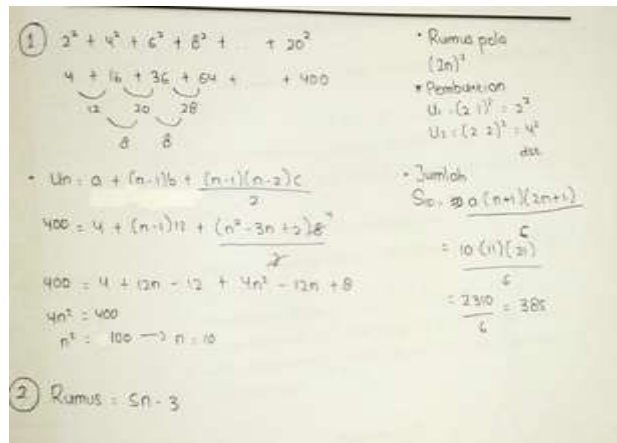 1 2² + 4² + 6² + 8² + ... + 20²
4 + 16 + 36 + 64 + ... + 400
12 20 28
8 8
• Un = a + (n-1)b + (n-1)(n-2)c
2
400 = 4 + (n-1)12 + (n²-3n+2)8
2
400 = 4 + 12n - 12 + 4n² - 12n + 8
4n² = 400
n² = 100 → n = 10
2 Rumus = 5n - 3
• Rumus pola
(2n)²
• Pembuktian
U₁ = (2 1)² = 2²
U₂ = (2 2)² = 4²
dst
• Jumlah
n(n+1)(2n+1)
6
= 10(11)(21)
6
= 2310 = 385
6